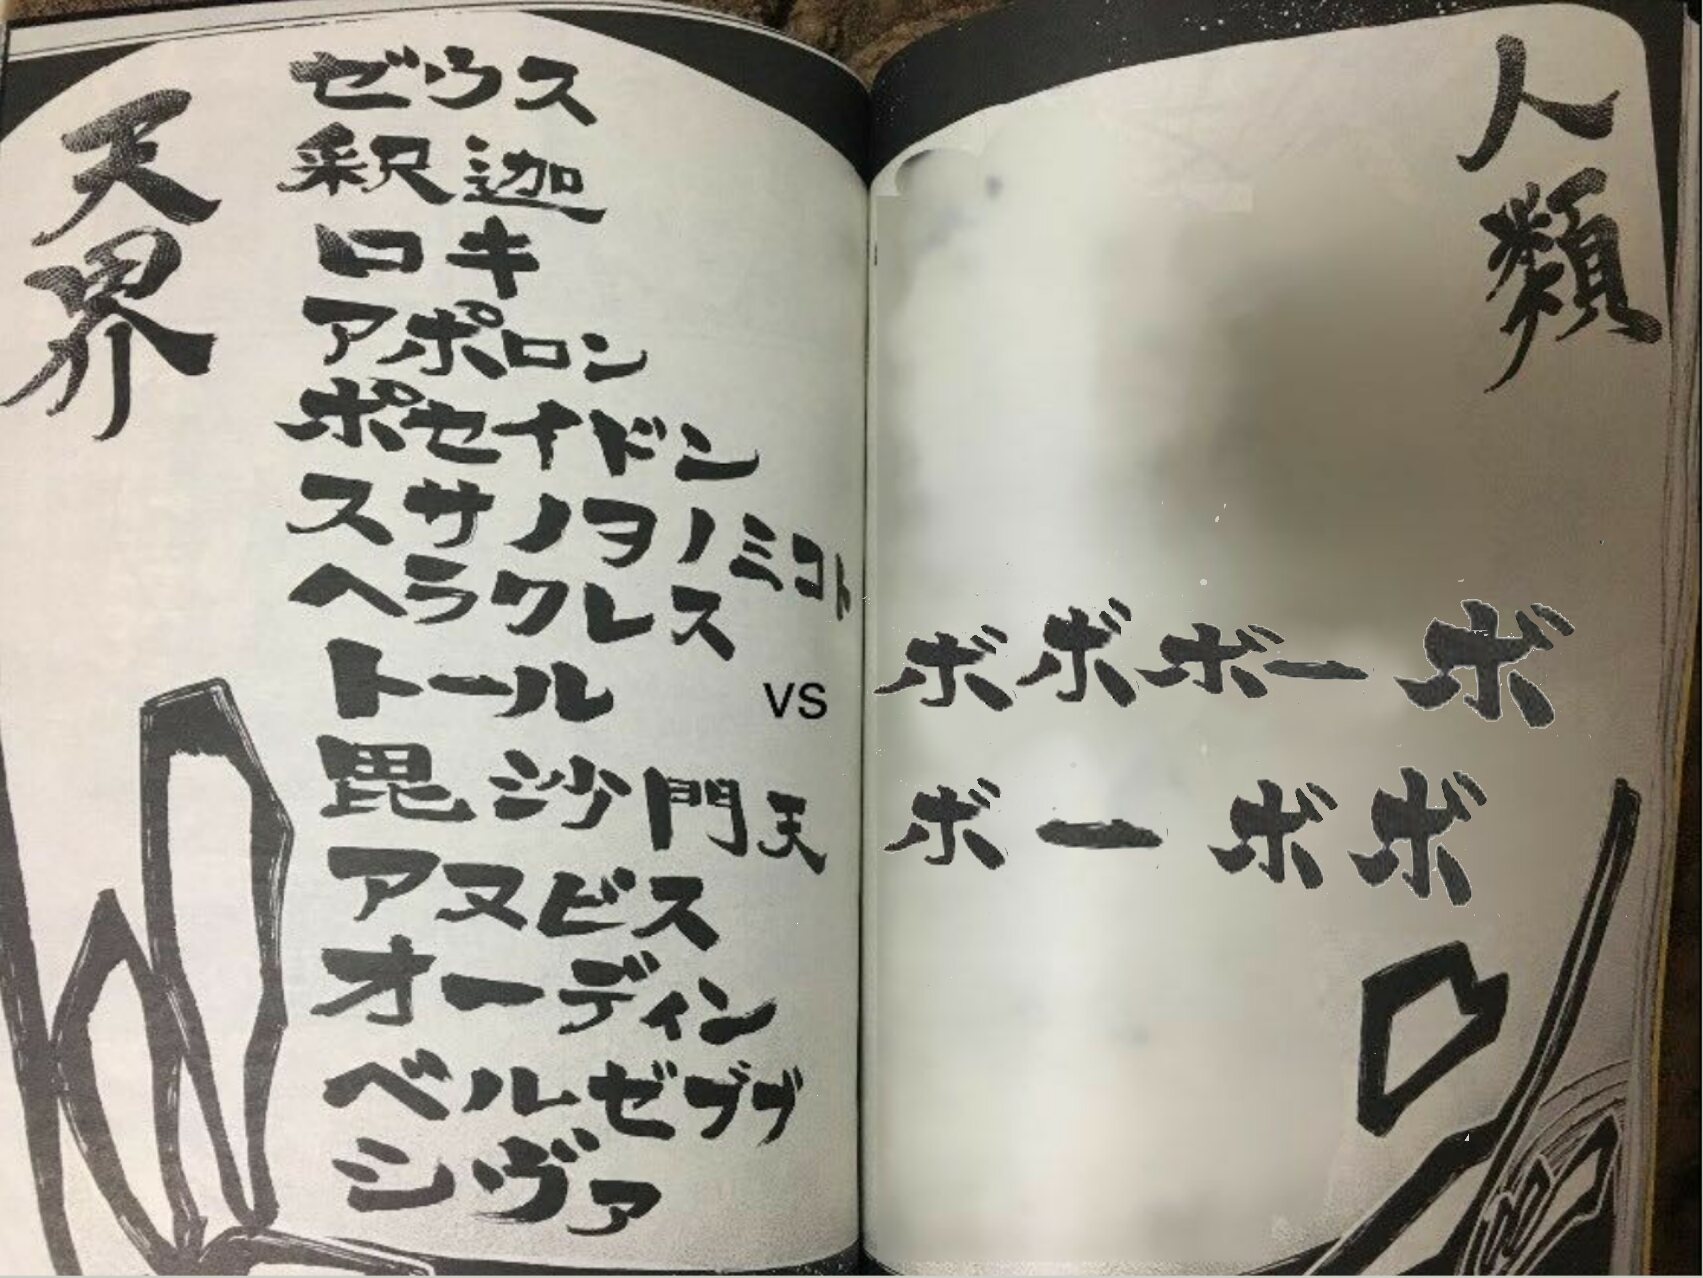 天界
ゼウス
釈迦
ロキ
アポロン
ポセイドン
スサノヲノミコト
ヘラクレス
トール
毘沙門天
アヌビス
オーディン
ベルゼブブ
シヴァ
VS
人類
ボボボーボ
ボーボボ